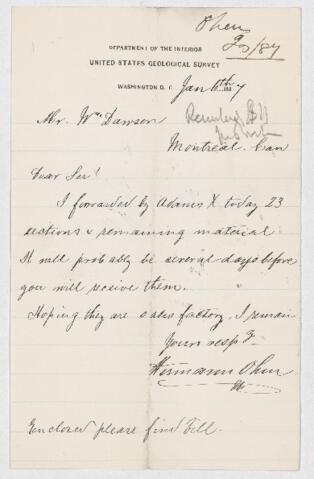 Ohern
DEPARTMENT OF THE INTERIOR
UNITED STATES GEOLOGICAL SURVEY
WASHINGTON D. C. Jan 188 7
Mr. Wm Dawson
Montreal Can
Dear Sir!
I forwarded by Adams X today 23
sections & remaining material
It will probably be several days before
you will recive them.
Hoping they are satesfactory, I remain
Yours resp y
Hermann Ohern
Enclosed please find Bill.